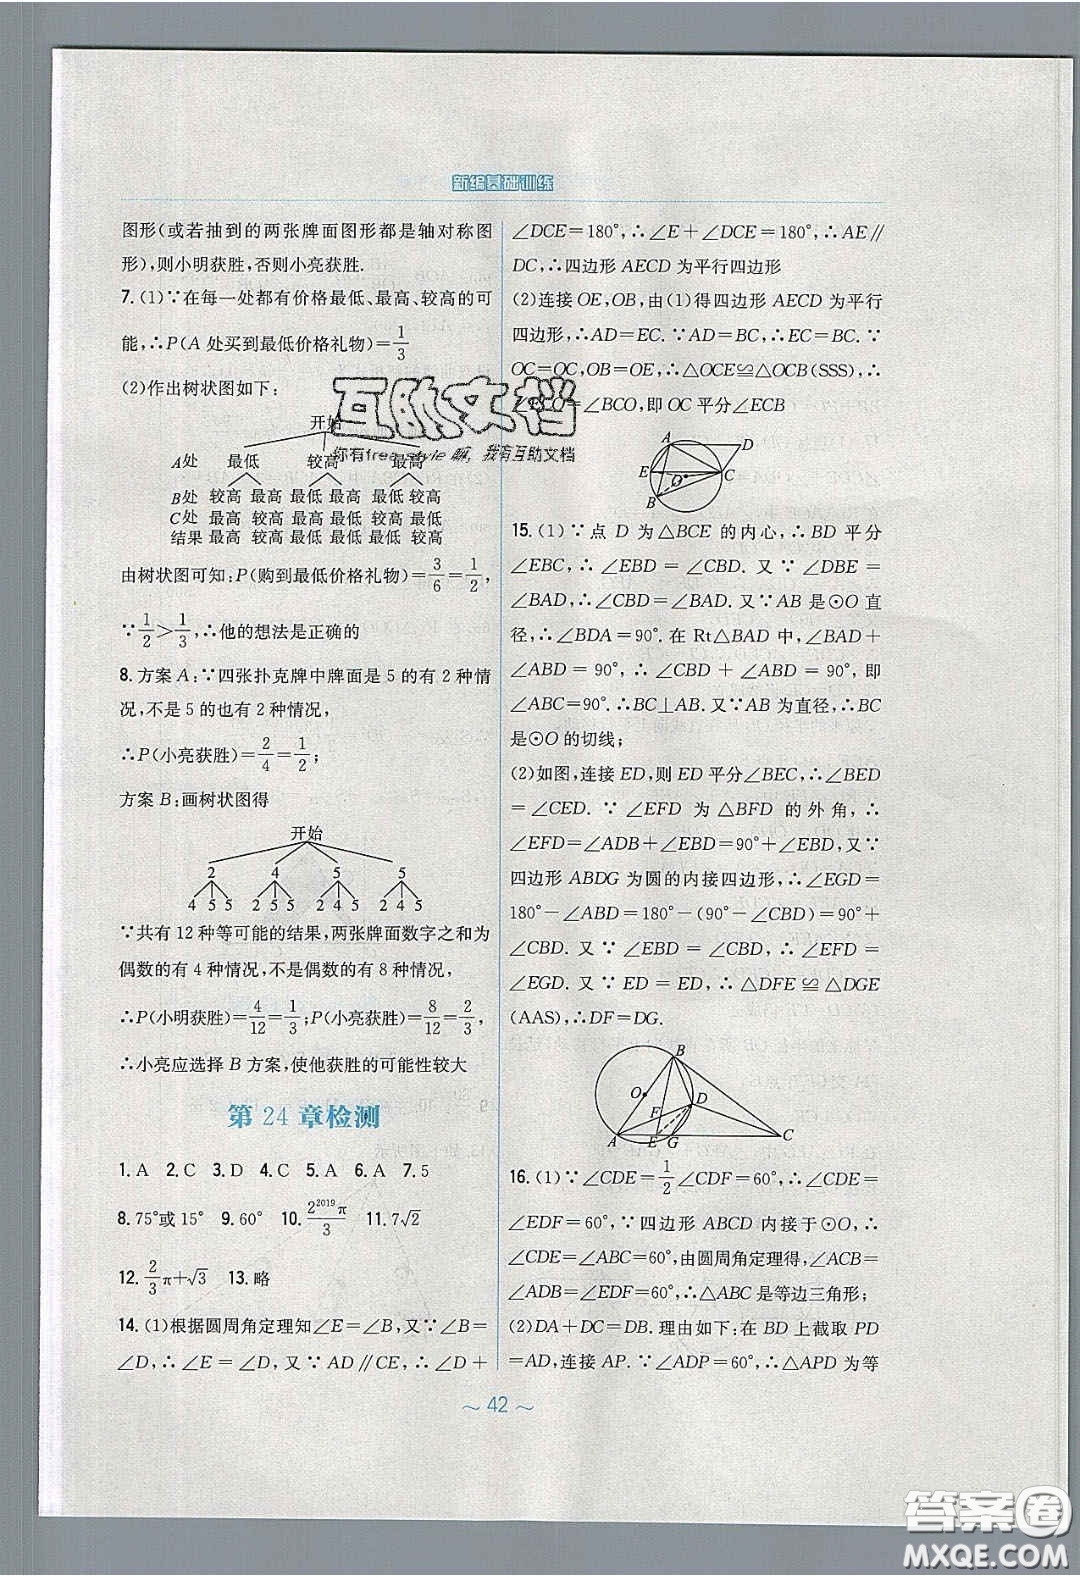 新编基础训练
图形(或若抽到的两张牌面图形都是轴对称图
形),则小明获胜,否则小亮获胜.
7. (1)∵在每一处都有价格最低、最高、较高的可
能,∴P(A处买到最低价格礼物)=1/3
(2)作出树状图如下:
开始
A处 最低 较高 最高
B处 较高 最高 最低 最高 最低 较高
C处 最高 较高 最高 最低 较高 最低
结果 最高 较高 最高 最低 最低 最低
由树状图可知:P(购到最低价格礼物)=3/6=1/2,
∵1/2>1/3,∴他的想法是正确的
8. 方案A:∵四张扑克牌中牌面是5的有2种情
况,不是5的也有2种情况,
∴P(小亮获胜)=2/4=1/2;
方案B:画树状图得
开始
2 4 5 5
4 5 5 2 5 5 2 4 5 2 4 5
∵共有12种等可能的结果,两张牌面数字之和为
偶数的有4种情况,不是偶数的有8种情况,
∴P(小明获胜)=4/12=1/3;P(小亮获胜)=8/12=2/3,
∴小亮应选择B方案,使他获胜的可能性较大
第24章检测
1. A 2. C 3. D 4. C 5. A 6. A 7. 5
8. 75°或15° 9. 60° 10. 2²⁰¹⁹π/3 11. 7√2
12. 2/3π+√3 13. 略
14. (1)根据圆周角定理知∠E=∠B,又∵∠B=
∠D,∴∠E=∠D,又∵AD∥CE,∴∠D+
∠DCE=180°,∴∠E+∠DCE=180°,∴AE∥
DC,∴四边形AECD为平行四边形
(2)连接OE,OB,由(1)得四边形AECD为平行
四边形,∴AD=EC.∵AD=BC,∴EC=BC.∵
OC=OC,OB=OE,∴△OCE≌△OCB(SSS),∴
∠ECO=∠BCO,即OC平分∠ECB
A D
E O C
B
15. (1)∵点D为△BCE的内心,∴BD平分
∠EBC,∴∠EBD=∠CBD.又∵∠DBE=
∠BAD,∴∠CBD=∠BAD.又∵AB是⊙O直
径,∴∠BDA=90°.在Rt△BAD中,∠BAD+
∠ABD=90°,∴∠CBD+∠ABD=90°,即
∠ABC=90°.∴BC⊥AB.又∵AB为直径,∴BC
是⊙O的切线;
(2)如图,连接ED,则ED平分∠BEC,∴∠BED
=∠CED.∵∠EFD为△BFD的外角,∴
∠EFD=∠ADB+∠EBD=90°+∠EBD,又∵
四边形ABDG为圆的内接四边形,∴∠EGD=
180°-∠ABD=180°-(90°-∠CBD)=90°+
∠CBD.又∵∠EBD=∠CBD,∴∠EFD=
∠EGD.又∵ED=ED,∴△DFE≌△DGE
(AAS),∴DF=DG.
B
O
F D
A E G C
16. (1)∵∠CDE=1/2∠CDF=60°,∴∠CDE=
∠EDF=60°,∵四边形ABCD内接于⊙O,∴
∠CDE=∠ABC=60°,由圆周角定理得,∠ACB=
∠ADB=∠EDF=60°,∴△ABC是等边三角形;
(2)DA+DC=DB.理由如下:在BD上截取PD
=AD,连接AP.∵∠ADP=60°,∴△APD为等
~ 42 ~
互助文档
你有free style嘛,我有互助文档
答案圈
MXQE.COM